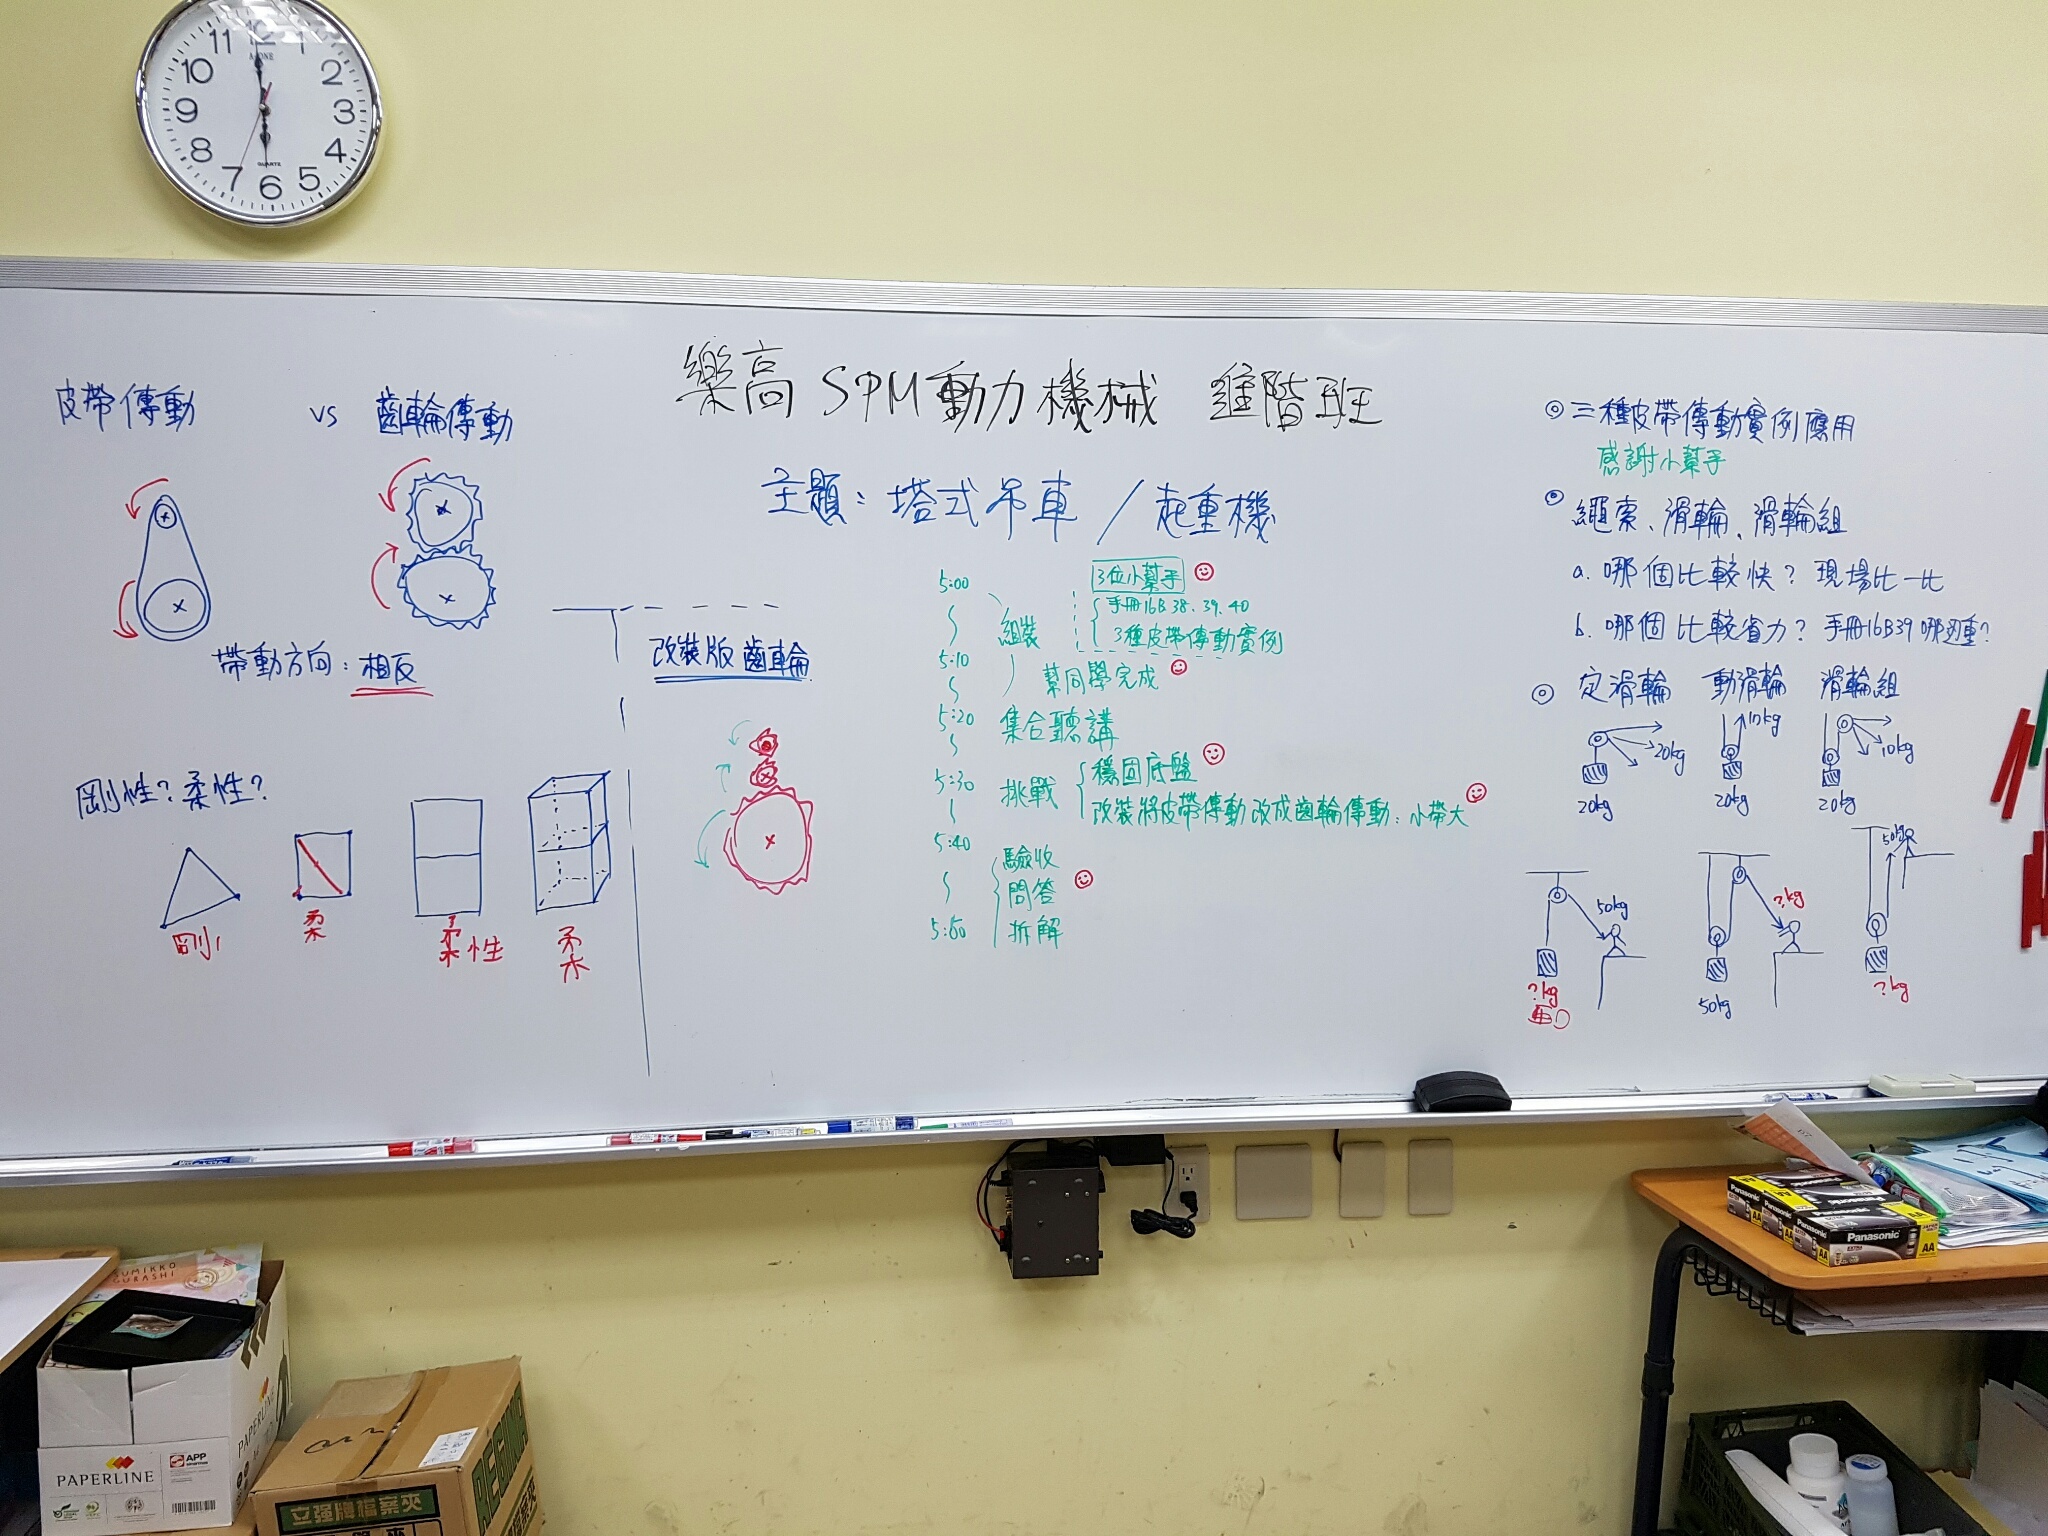 11 12 1
10 2
9 3
8 4
7 6 5
QUARTZ
樂高 SPM動力機械 進階班
主題：塔式吊車 / 起重機
皮帶傳動 vs 齒輪傳動
帶動方向：相反
剛性？柔性？
剛
柔
柔性
柔
改裝版齒輪
5:00
組裝
3位小幫手
手冊16B 38、39、40
3種皮帶傳動實例
5:10
幫同學完成
5:20 集合聽講
5:30 挑戰
穩固底盤
改裝將皮帶傳動改成齒輪傳動：小帶大
5:40
驗收
問答
5:50 拆解
◎三種皮帶傳動實例應用
感謝小幫手
◎繩索、滑輪、滑輪組
a. 哪個比較快？現場比一比
b. 哪個比較省力？手冊16B39 哪邊重？
◎定滑輪 動滑輪 滑輪組
20kg
20kg
10kg
20kg
10kg
20kg
50kg
?kg
?kg
50kg
50kg
?kg
SUMIKKO
GURASHI
PAPERLINE
APP
PAPERLINE
立强牌檔案夾
Panasonic
AA
Panasonic
AA